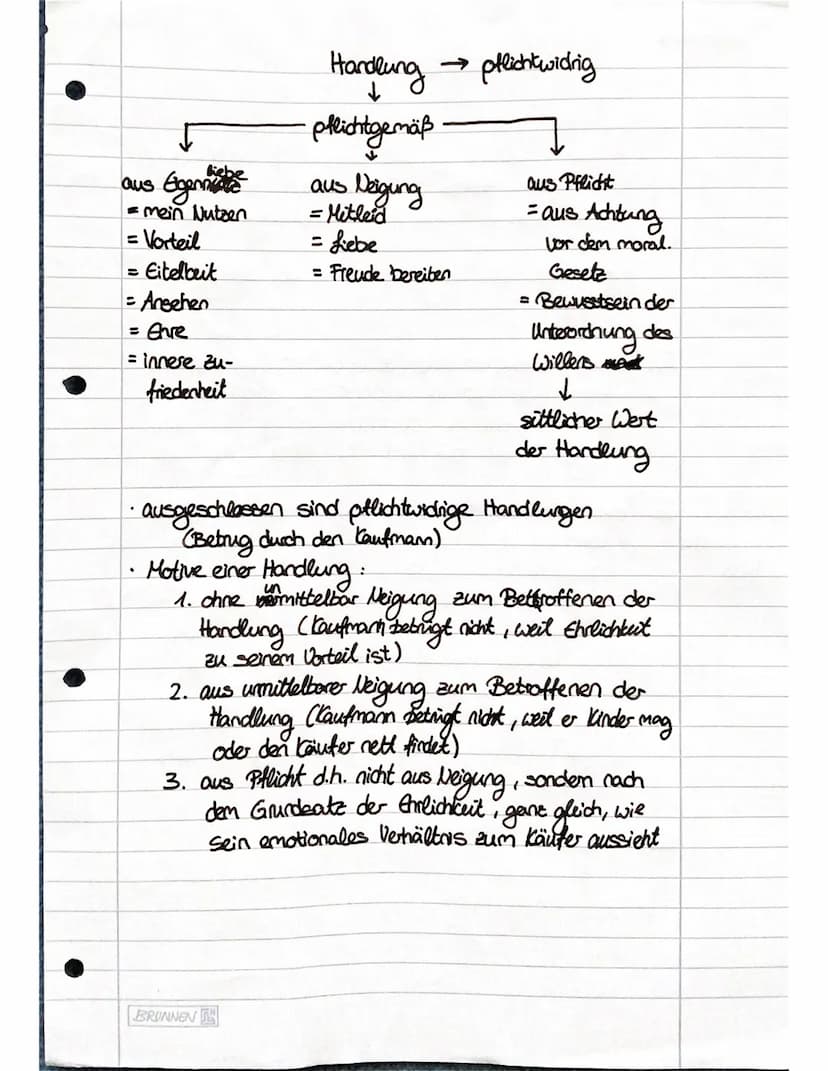 Handlung → pflichtwidrig
↓
pflichtgemäß
aus Eigenliebe
= mein Nutzen
= Vorteil
= Eitelkeit
= Ansehen
= Ehre
= innere Zu-
friedenheit
aus Neigung
= Mitleid
= Liebe
= Freude bereiten
aus Pflicht
= aus Achtung
vor dem moral.
Gesetz
= Bewusstsein der
Unterordnung des
Willens
↓
sittlicher Wert
der Handlung
· ausgeschlossen sind pflichtwidrige Handlungen
(Betrug durch den Kaufmann)
· Motive einer Handlung:
1. ohne unmittelbar Neigung zum Betroffenen der
Handlung (Kaufmann betrügt nicht, weil Ehrlichkeit
zu seinem Vorteil ist)
2. aus unmittelbarer Neigung zum Betroffenen der
Handlung (Kaufmann betrügt nicht, weil er Kinder mag
oder den Käufer nett findet)
3. aus Pflicht d.h. nicht aus Neigung, sondern nach
dem Grundsatz der Ehrlichkeit, ganz gleich, wie
sein emotionales Verhältnis zum Käufer aussieht
BRUNNEN